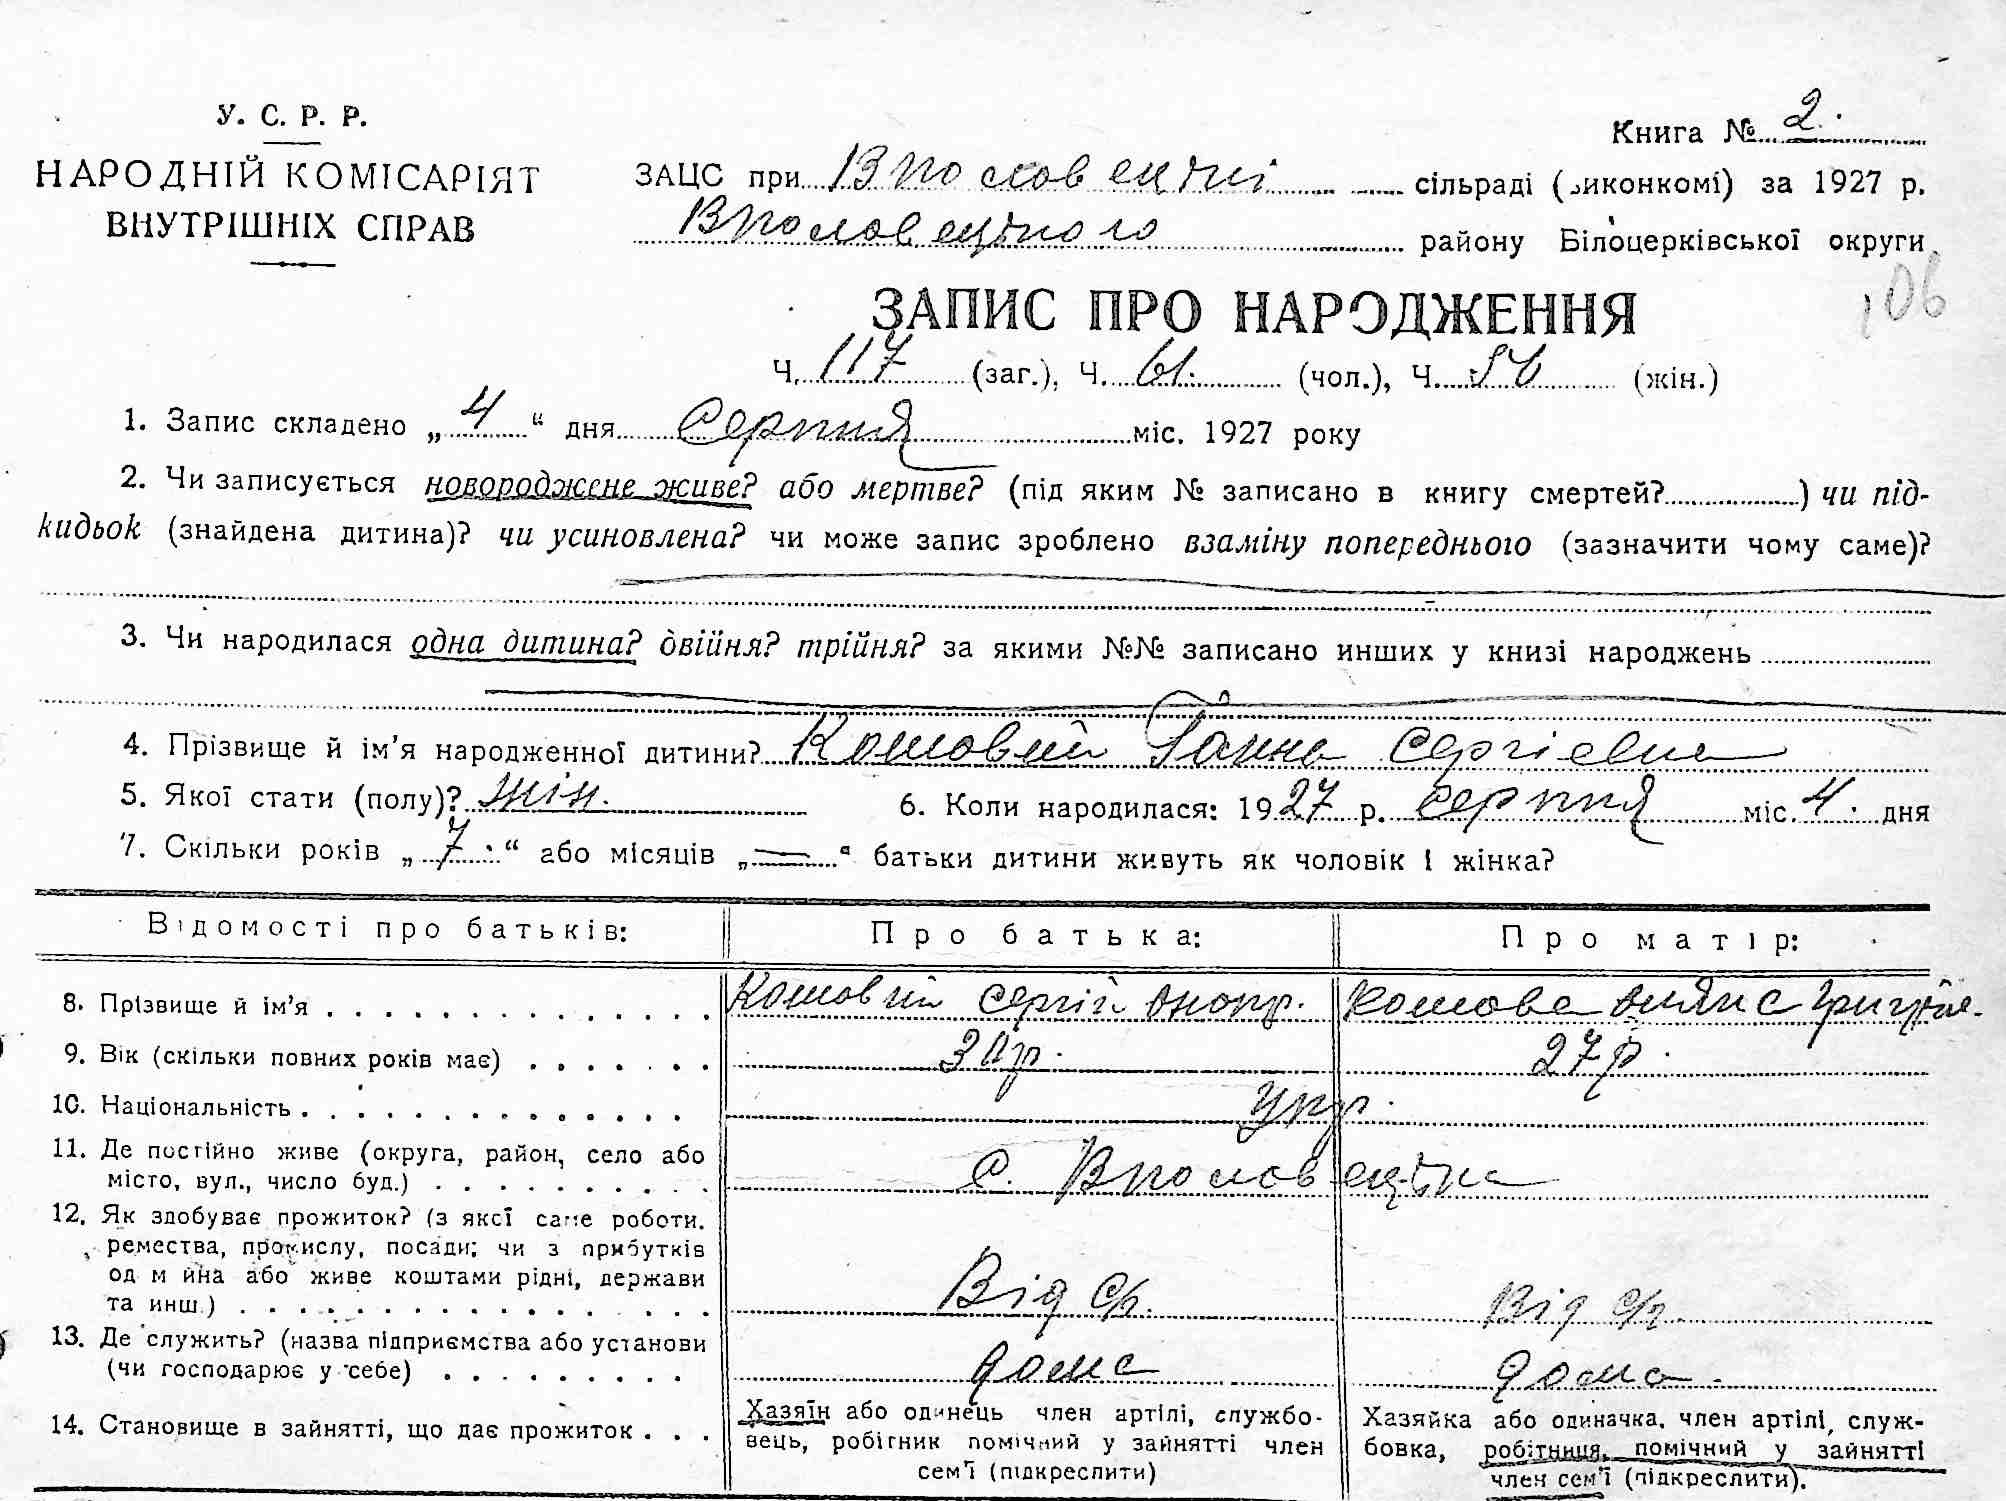 У. С. Р. Р.
НАРОДНІЙ КОМІСАРІЯТ
ВНУТРІШНІХ СПРАВ
Книга № 2.
ЗАЦС при Впологовецькі сільраді (виконкомі) за 1927 р.
району Білоцерківської округи
106
ЗАПИС ПРО НАРОДЖЕННЯ
Ч. 117 (заг.), Ч. 61. (чол.), Ч. 56 (жін.)
1. Запис складено „4“ дня Серпня міс. 1927 року
2. Чи записується новороджене живе? або мертве? (під яким № записано в книгу смертей?..........) чи під-
кидьок (знайдена дитина)? чи усиновлена? чи може запис зроблено взаміну попереднього (зазначити чому саме)?
3. Чи народилася одна дитина? двійня? трійня? за якими №№ записано инших у книзі народжень
4. Прізвище й ім’я народженної дитини? Кошовий Ганна Сергієвна
5. Якої стати (полу)? жін. 6. Коли народилася: 1927 р. серпня міс. 4. дня
7. Скільки років „7.“ або місяців „—“ батьки дитини живуть як чоловік і жінка?
Відомості про батьків: Про батька: Про матір:
8. Прізвище й ім’я Кошовий Сергій Онопр. Кошова
9. Вік (скільки повних років має) 30р. 27р.
10. Національність укр.
11. Де постійно живе (округа, район, село або
місто, вул., число буд.) с.
12. Як здобуває прожиток? (з якої саме роботи.
ремества, промислу, посади; чи з прибутків
од майна або живе коштами рідні, держави
та инш.) Від с/г. Від с/г.
13. Де служить? (назва підприємства або установи
(чи господарює у себе) дома дома.
14. Становище в зайнятті, що дає прожиток
Хазяїн або одинець член артілі, службо-
вець, робітник помічний у зайнятті член
сем’ї (підкреслити)
Хазяйка або одиначка, член артілі, служ-
бовка, робітниця, помічний у зайнятті
член сем’ї (підкреслити).